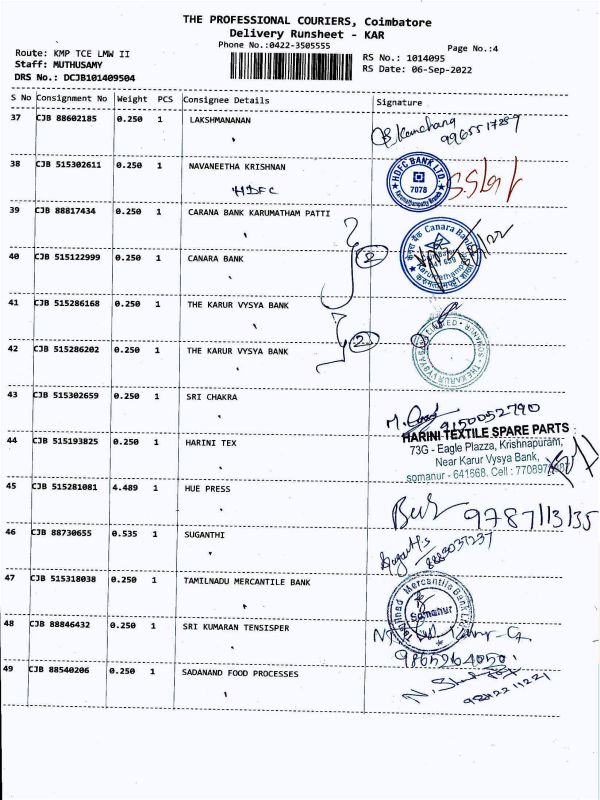 THE PROFESSIONAL COURIERS, Coimbatore
Delivery Runsheet - KAR
Phone No.:0422-3505555
Page No.:4
Route: KMP TCE LMW II
Staff: MUTHUSAMY
DRS No.: DCJB101409504
RS No.: 1014095
RS Date: 06-Sep-2022
S No Consignment No Weight PCS Consignee Details Signature
37 CJB 88602185 0.250 1 LAKSHMANANAN
9965517289
38 CJB 515302611 0.250 1 NAVANEETHA KRISHNAN
HDFC
HDFC BANK LTD.
7078
39 CJB 88817434 0.250 1 CARANA BANK KARUMATHAM PATTI
2
Canara Bank
40 CJB 515122999 0.250 1 CANARA BANK
41 CJB 515286168 0.250 1 THE KARUR VYSYA BANK
2
42 CJB 515286202 0.250 1 THE KARUR VYSYA BANK
43 CJB 515302659 0.250 1 SRI CHAKRA
9150052790
44 CJB 515193825 0.250 1 HARINI TEX
HARINI TEXTILE SPARE PARTS
73G - Eagle Plazza, Krishnapuram,
Near Karur Vysya Bank,
somanur - 641668. Cell : 7708974
45 CJB 515281081 4.489 1 HUE PRESS
9787113135
46 CJB 88730655 0.535 1 SUGANTHI
8883037237
47 CJB 515318038 0.250 1 TAMILNADU MERCANTILE BANK
Tamilnad Mercantile Bank Ltd.
Somanur
48 CJB 88846432 0.250 1 SRI KUMARAN TENSISPER
9865264050
49 CJB 88540206 0.250 1 SADANAND FOOD PROCESSES